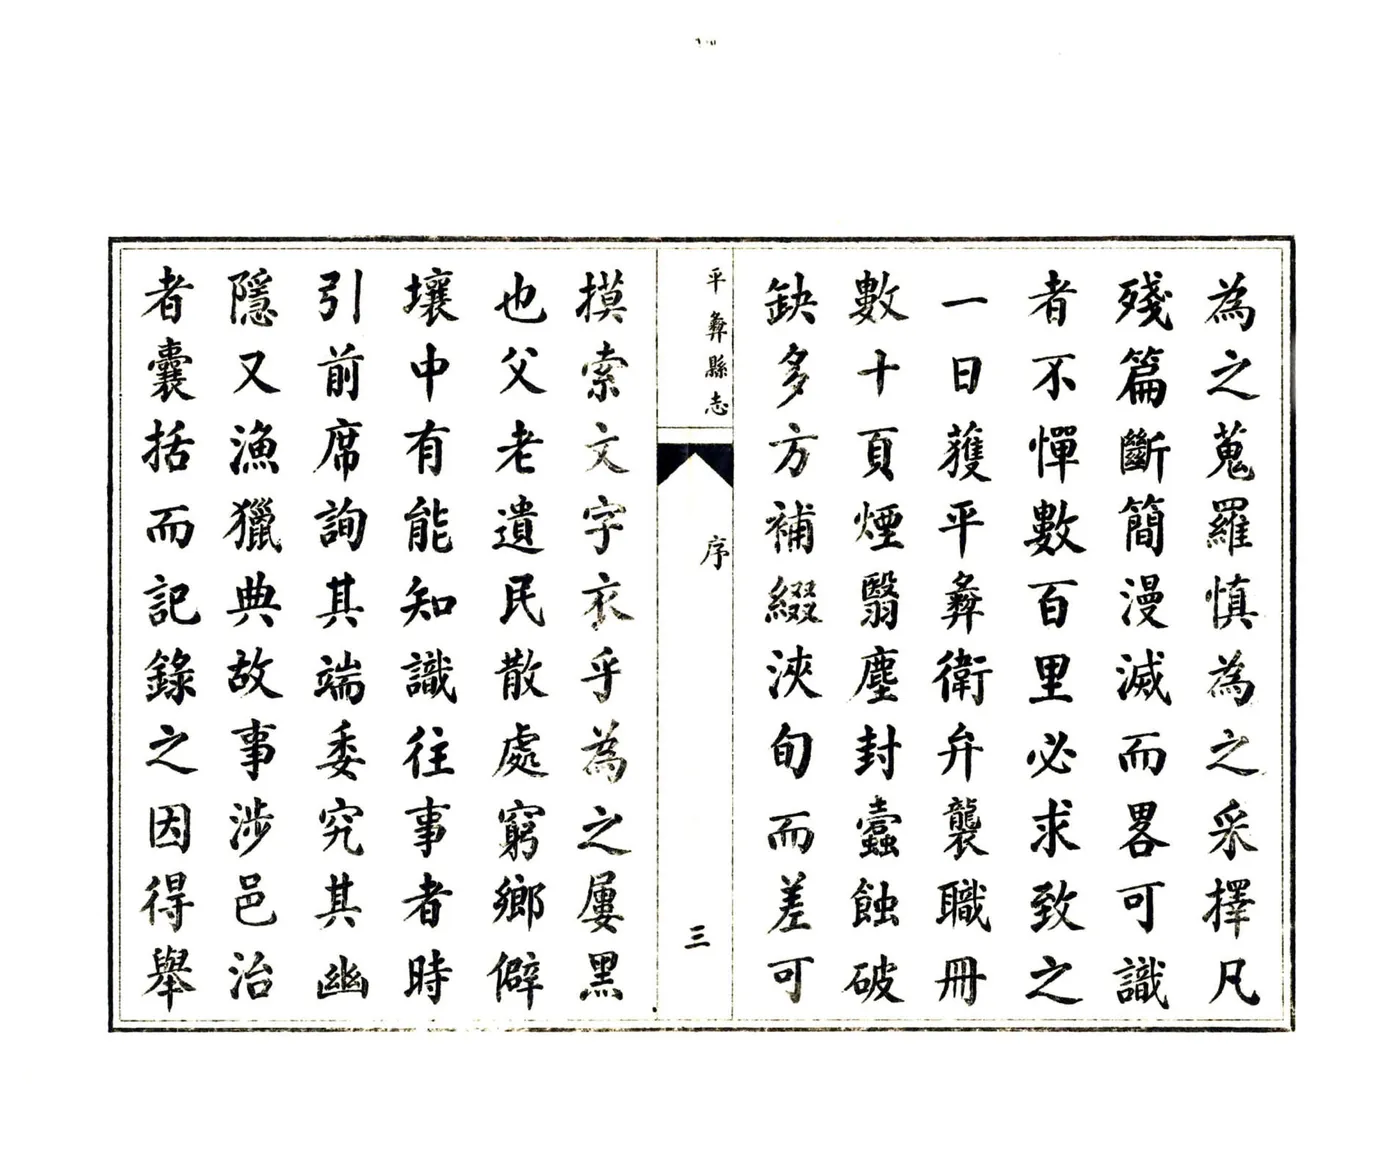 為之蒐羅慎為之采擇凡
殘篇斷簡漫滅而畧可識
者不憚數百里必求致之
一日獲平彜衛弁襲職冊
數十頁煙翳塵封蠧蝕破
缺多方補綴浹旬而差可
平彜縣志
序
三
摸索文字衣乎為之屢黑
也父老遺民散處窮鄉僻
壤中有能知識往事者時
引前席詢其端委究其幽
隱又漁獵典故事涉邑治
者囊括而記錄之因得舉